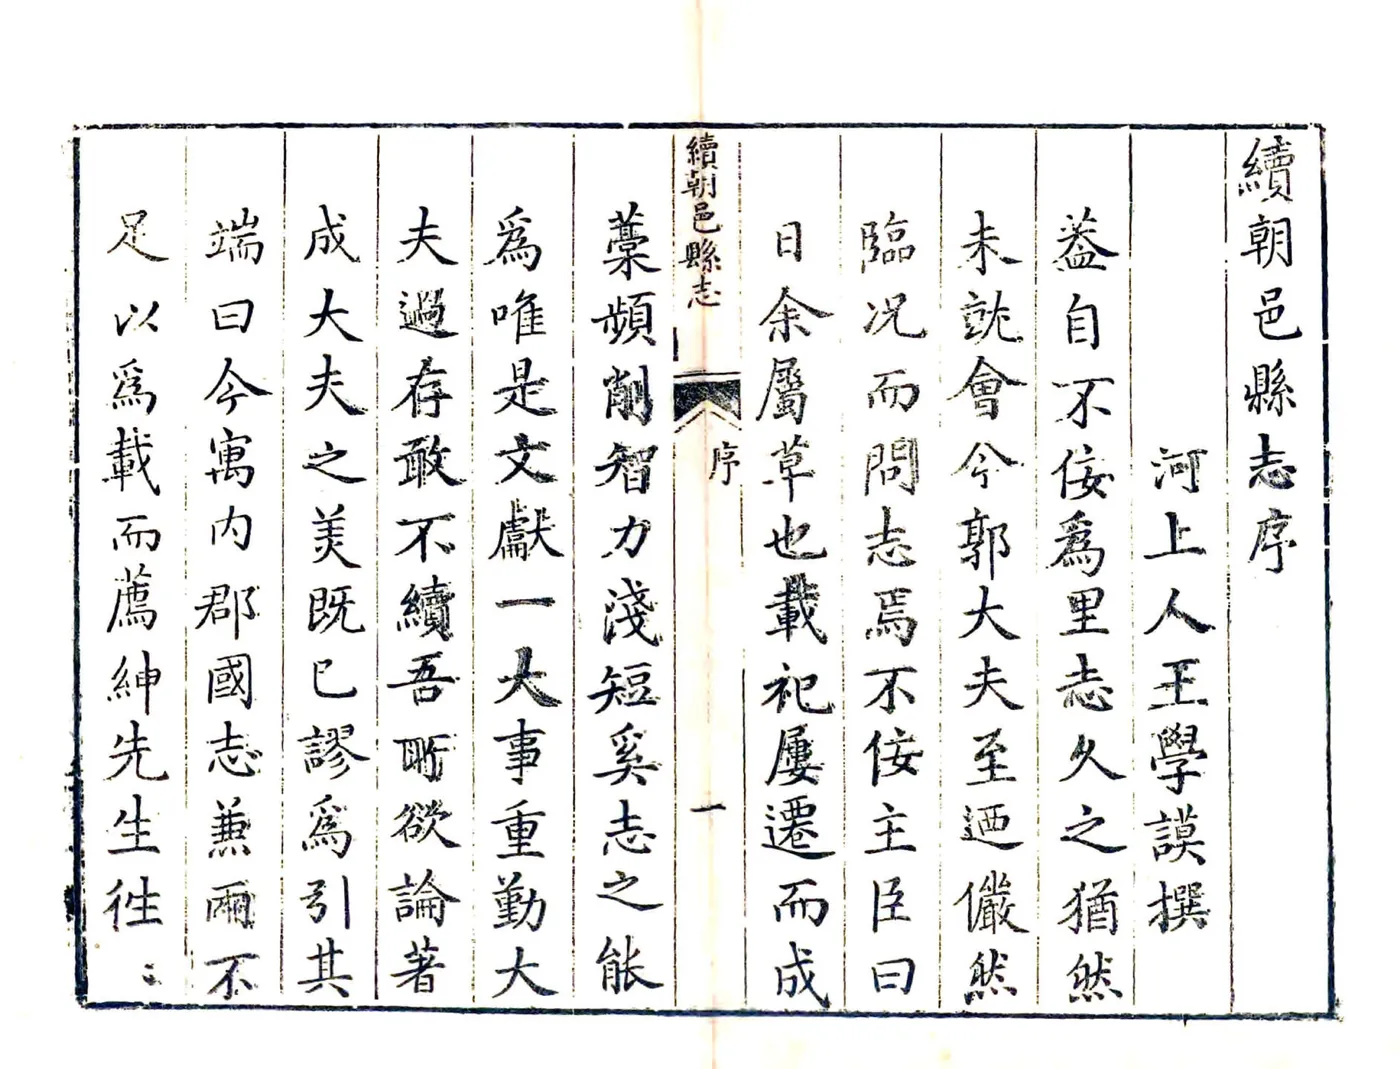 續朝邑縣志序
河上人王學謨撰
葢自不佞爲里志久之猶然
未就會今郭大夫至迺儼然
臨况而問志焉不佞主臣曰
日余屬草也載祀屢遷而成
續朝邑縣志
序
一
藁頻削智力淺短奚志之能
爲唯是文獻一大事重勤大
夫過存敢不續吾所欲論著
成大夫之美既已謬爲引其
端曰今寓内郡國志無慮不
足以爲載而薦紳先生徃〻